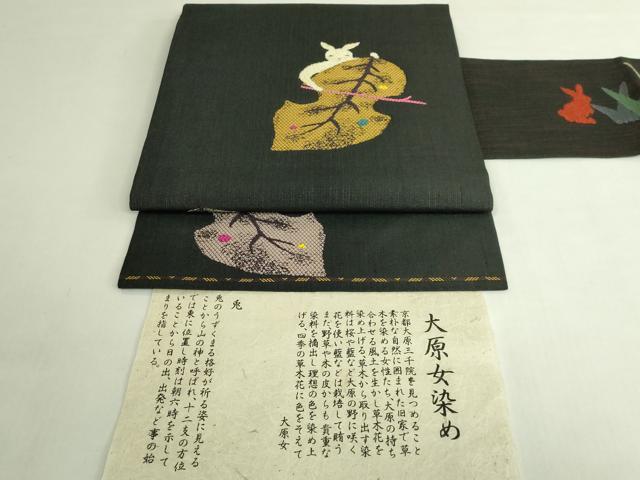 大原女染め
京都大原三千院を見つめること
素朴な自然に囲まれた旧家で草
木を染める女性たち、大原の持ち
合わせる風土を生かし草木花を
染め上げる。草木から取り出す染
料は桜や藍など大原の野に咲く
花を使い藍などは栽培して賄う
また、野草や木の皮からも貴重な
染料を摘出し理想の色を染め上
げる、四季の草木花に色をそえて
大原女
兎
兎のうずくまる格好が祈る姿に見える
ことから山の神と呼ばれ、十二支の方位
では東に位置し時刻は朝六時を示して
いることから日の出、出発など事の始
まりを指している。